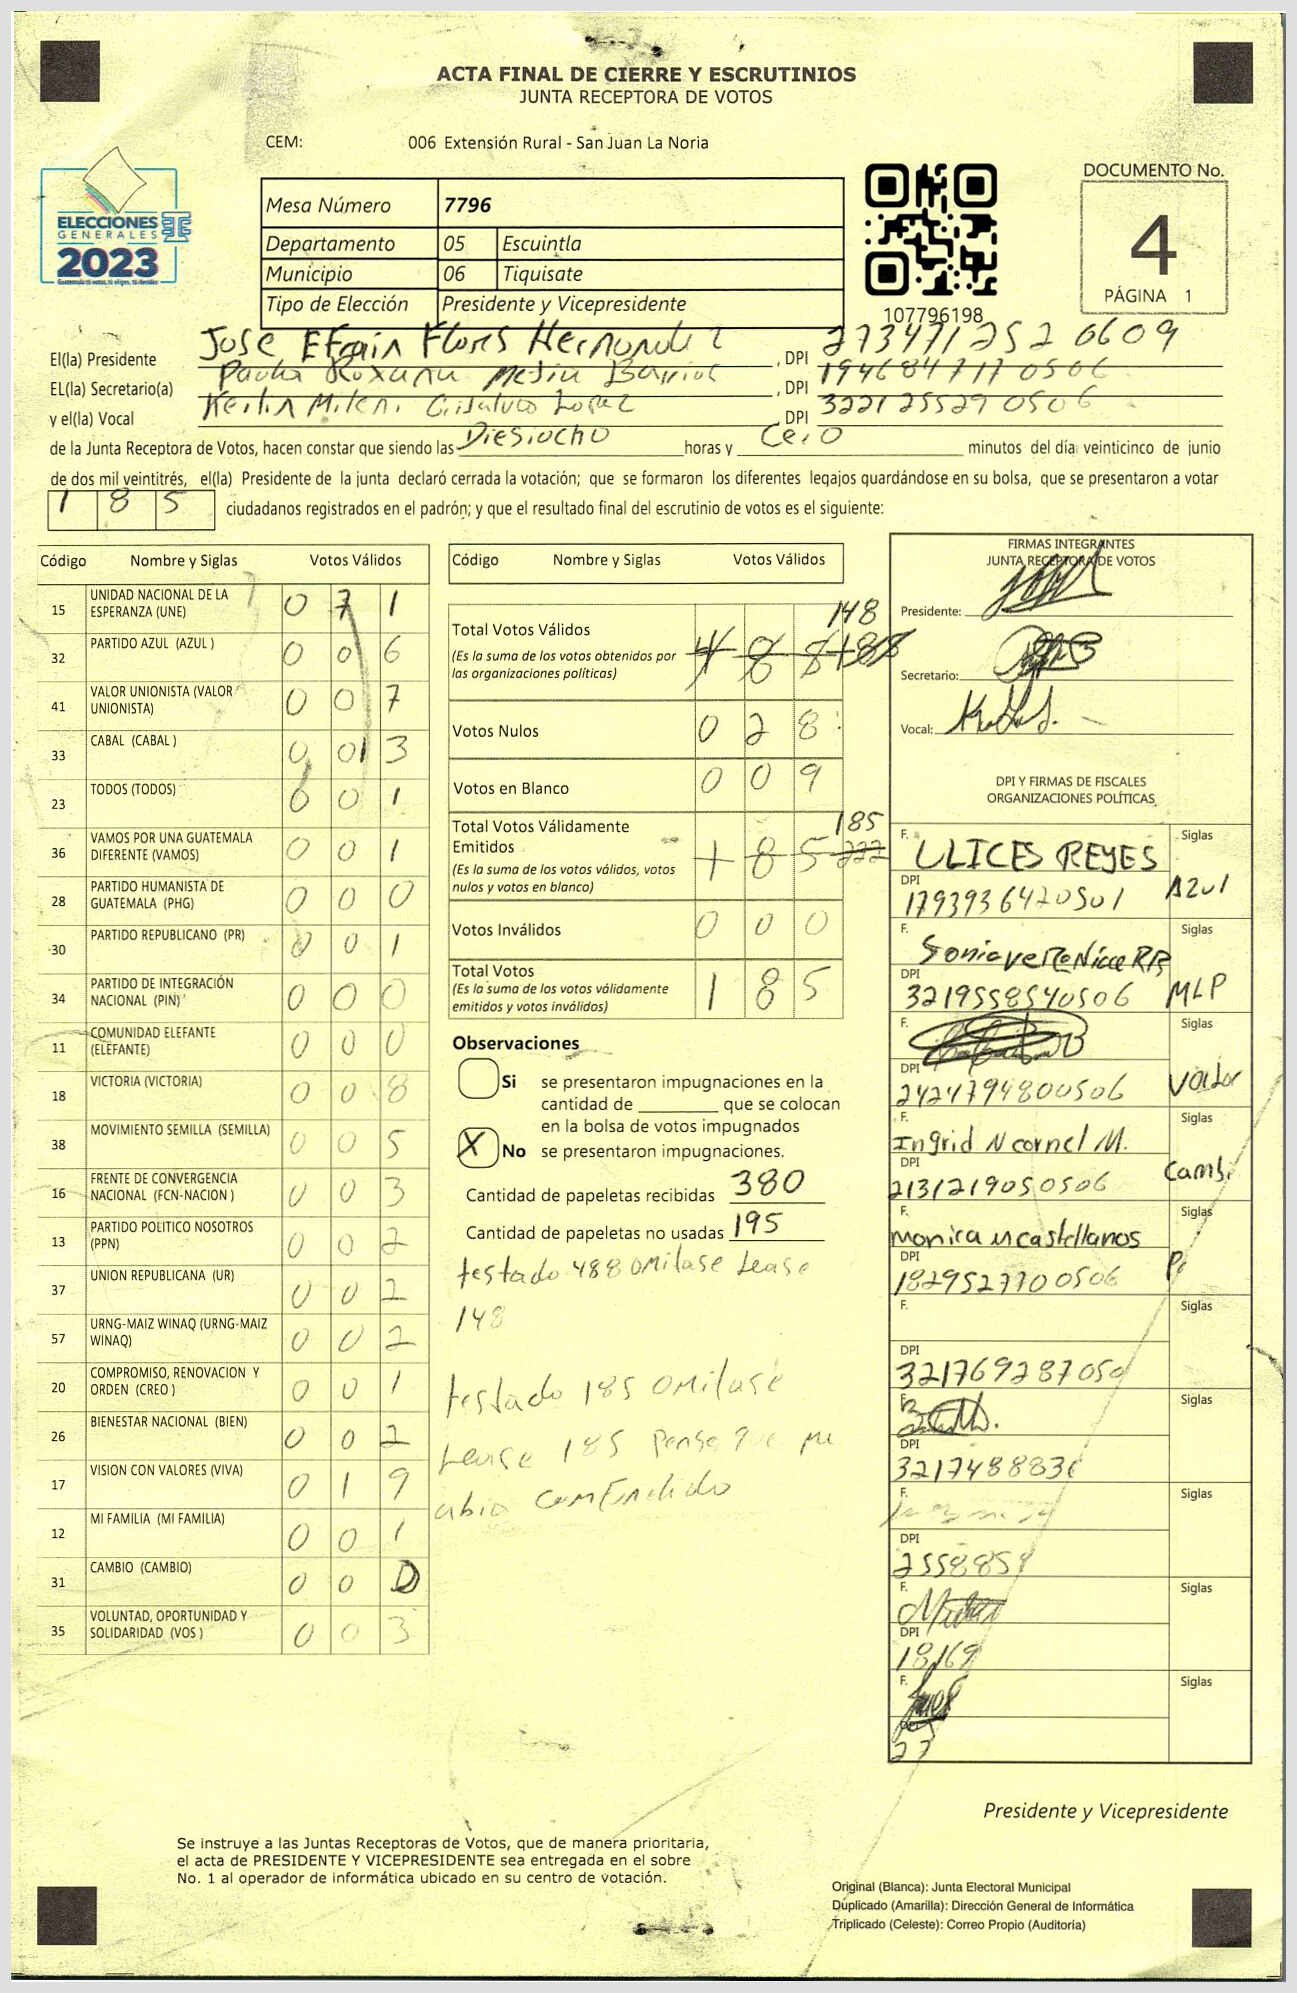 ACTA FINAL DE CIERRE Y ESCRUTINIOS
JUNTA RECEPTORA DE VOTOS
CEM: 006 Extensión Rural - San Juan La Noria
DOCUMENTO No.
4
PÁGINA 1
ELECCIONES
GENERALES
2023
Mesa Número 7796
Departamento 05 Escuintla
Municipio 06 Tiquisate
Tipo de Elección Presidente y Vicepresidente
107796198
El(la) Presidente Jose Efrain Flores Hernandez , DPI 273471252 0609
EL(la) Secretario(a) Roxana Barrios , DPI 194684717 0506
y el(la) Vocal , DPI 322125529 0506
de la Junta Receptora de Votos, hacen constar que siendo las Diesiocho horas y Cero minutos del día: veinticinco de junio
de dos mil veintitrés, el(la) Presidente de la junta declaró cerrada la votación; que se formaron los diferentes legajos guardándose en su bolsa, que se presentaron a votar
1 8 5 ciudadanos registrados en el padrón; y que el resultado final del escrutinio de votos es el siguiente:
Código Nombre y Siglas Votos Válidos
15 UNIDAD NACIONAL DE LA ESPERANZA (UNE) 0 7 1
32 PARTIDO AZUL (AZUL ) 0 0 6
41 VALOR UNIONISTA (VALOR UNIONISTA) 0 0 7
33 CABAL (CABAL ) 0 01 3
23 TODOS (TODOS) 0 0 1
36 VAMOS POR UNA GUATEMALA DIFERENTE (VAMOS) 0 0 1
28 PARTIDO HUMANISTA DE GUATEMALA (PHG) 0 0 0
30 PARTIDO REPUBLICANO (PR) 0 0 1
34 PARTIDO DE INTEGRACIÓN NACIONAL (PIN) 0 0 0
11 COMUNIDAD ELEFANTE (ELEFANTE) 0 0 0
18 VICTORIA (VICTORIA) 0 0 8
38 MOVIMIENTO SEMILLA (SEMILLA) 0 0 5
16 FRENTE DE CONVERGENCIA NACIONAL (FCN-NACION ) 0 0 3
13 PARTIDO POLITICO NOSOTROS (PPN) 0 0 2
37 UNION REPUBLICANA (UR) 0 0 2
57 URNG-MAIZ WINAQ (URNG-MAIZ WINAQ) 0 0 2
20 COMPROMISO, RENOVACION Y ORDEN (CREO ) 0 0 1
26 BIENESTAR NACIONAL (BIEN) 0 0 2
17 VISION CON VALORES (VIVA) 0 1 9
12 MI FAMILIA (MI FAMILIA) 0 0 1
31 CAMBIO (CAMBIO) 0 0 0
35 VOLUNTAD, OPORTUNIDAD Y SOLIDARIDAD (VOS ) 0 0 3
Código Nombre y Siglas Votos Válidos
148
Total Votos Válidos 4 8 8
(Es la suma de los votos obtenidos por
las organizaciones políticas)
Votos Nulos 0 2 8
Votos en Blanco 0 0 9
185
Total Votos Válidamente
Emitidos 1 8 5 222
(Es la suma de los votos válidos, votos
nulos y votos en blanco)
Votos Inválidos 0 0 0
Total Votos 1 8 5
(Es la suma de los votos válidamente
emitidos y votos inválidos)
Observaciones
Si se presentaron impugnaciones en la
cantidad de ________ que se colocan
en la bolsa de votos impugnados
X No se presentaron impugnaciones.
Cantidad de papeletas recibidas 380
Cantidad de papeletas no usadas 195
testado 488 omitase Lease
148
testado 185 omitase
Lease 185
FIRMAS INTEGRANTES
JUNTA RECEPTORA DE VOTOS
Presidente:
Secretario:
Vocal:
DPI Y FIRMAS DE FISCALES
ORGANIZACIONES POLÍTICAS
F. ULICES REYES Siglas
DPI 1793936420501 Azul
F. Siglas
DPI 3219558540506 MLP
F. Siglas
DPI 2424794800506 Valor
F. Ingrid N cornel M. Siglas
DPI 2131219050506
F. monica M castellanos Siglas
DPI 1829527700506
F. Siglas
DPI 321769287050
F. Siglas
DPI 321748883
F. Siglas
DPI 255885
F. Siglas
DPI 18169
F. Siglas
DPI 27
Presidente y Vicepresidente
Se instruye a las Juntas Receptoras de Votos, que de manera prioritaria,
el acta de PRESIDENTE Y VICEPRESIDENTE sea entregada en el sobre
No. 1 al operador de informática ubicado en su centro de votación.
Original (Blanca): Junta Electoral Municipal
Duplicado (Amarilla): Dirección General de Informática
Triplicado (Celeste): Correo Propio (Auditoría)